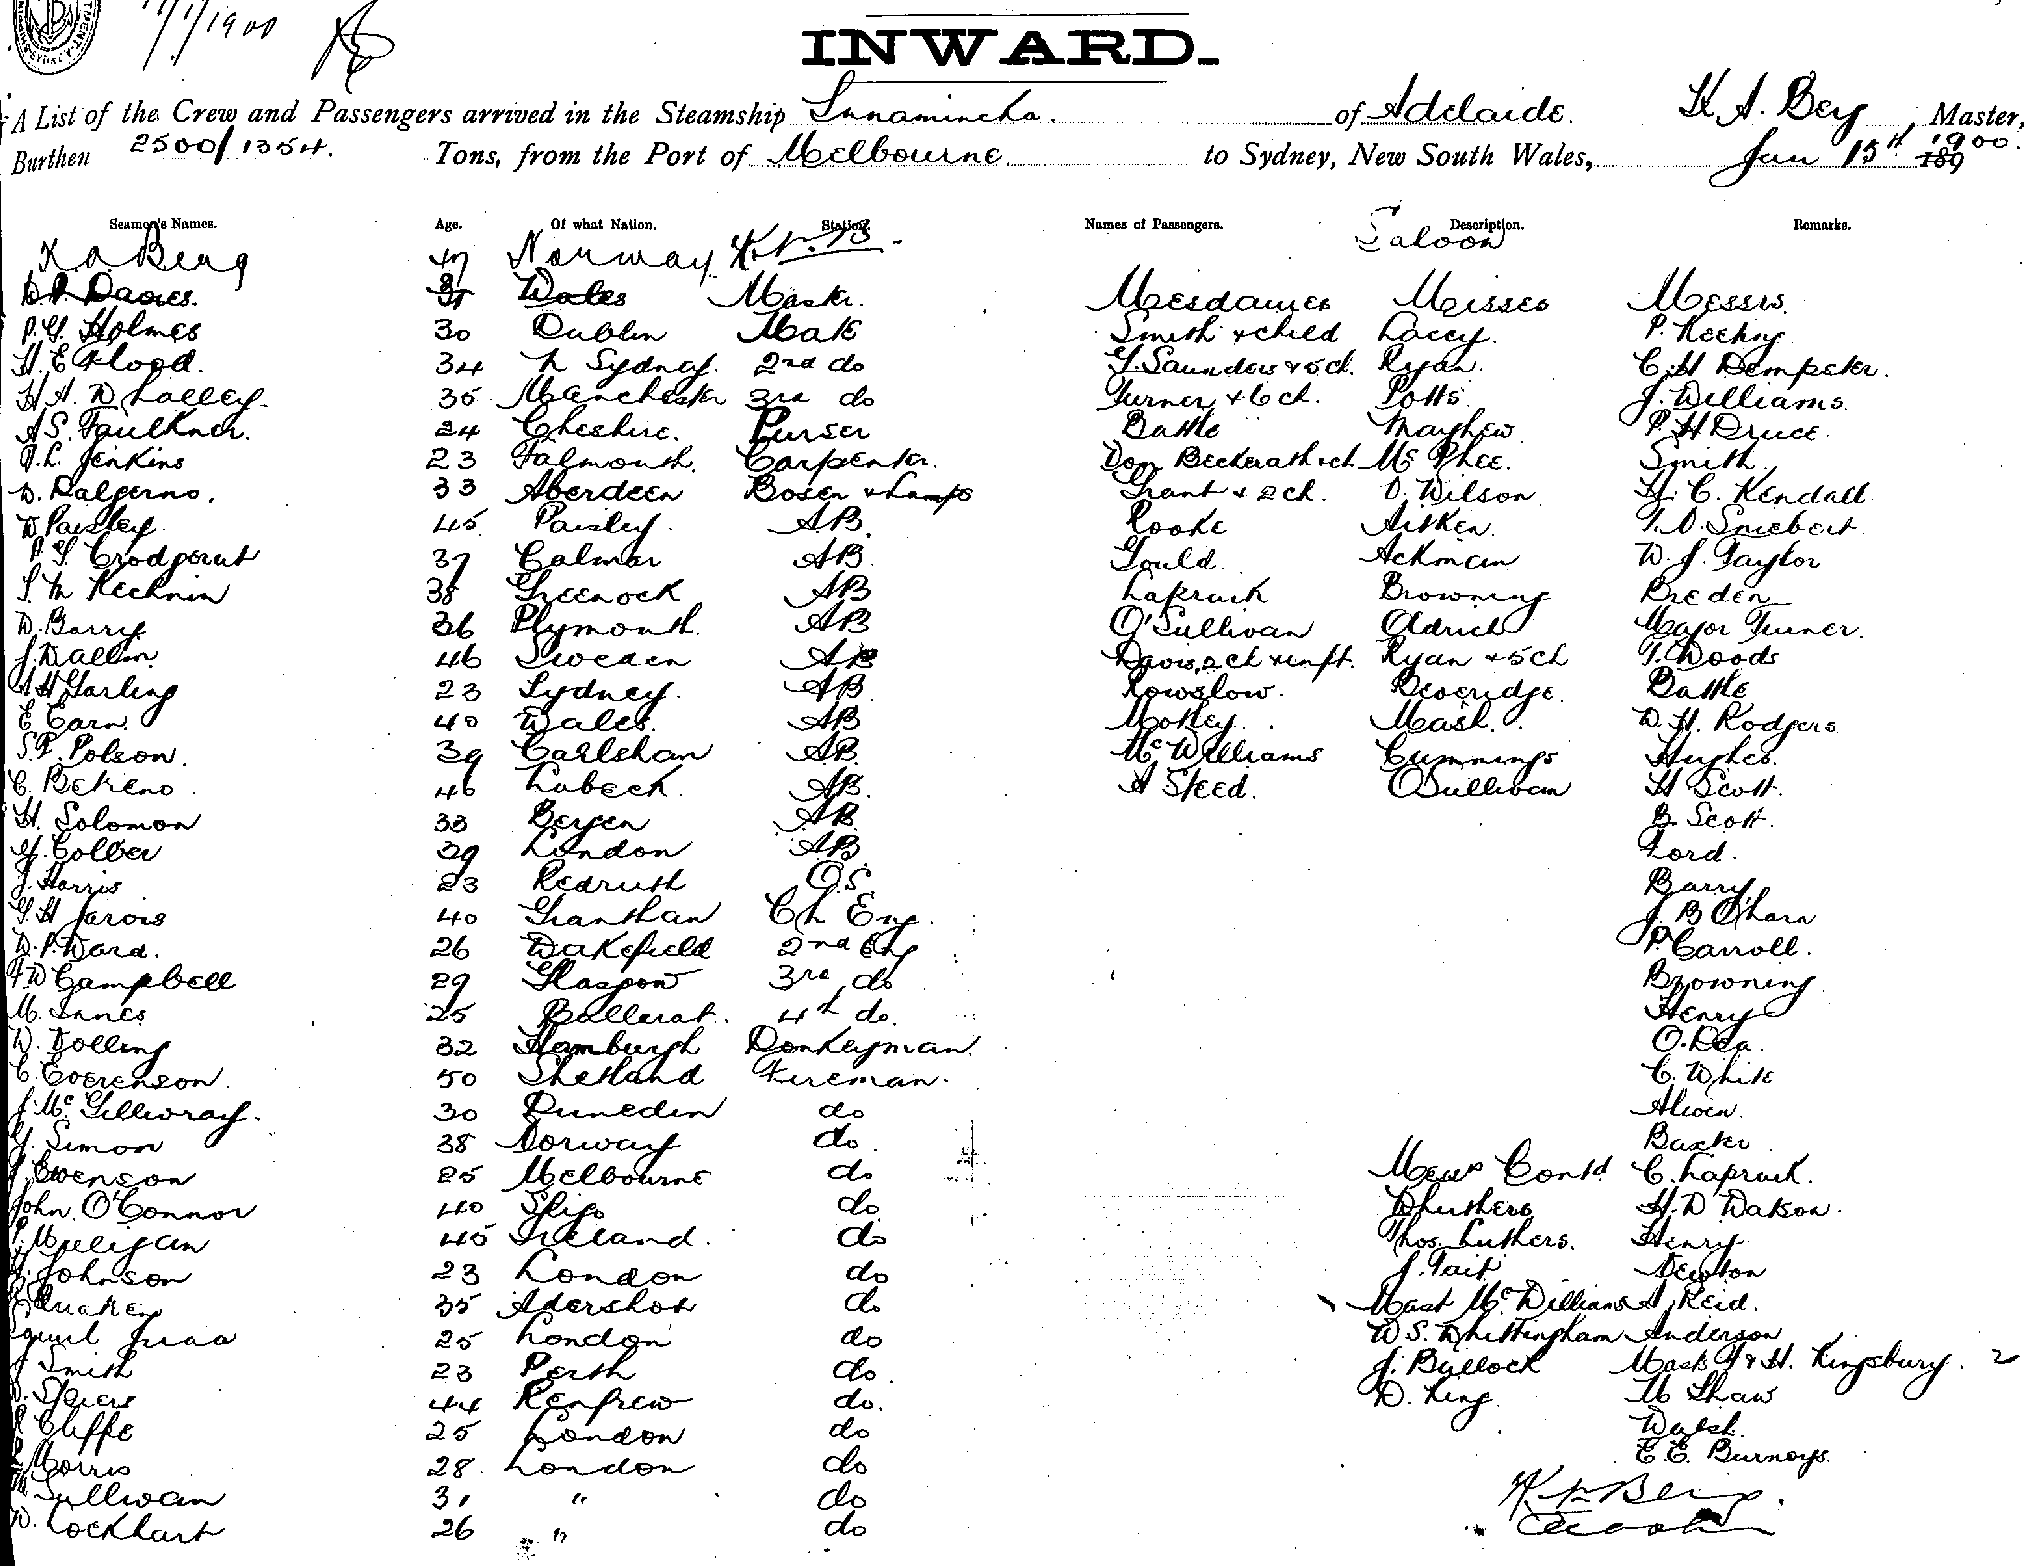 1/1/1900
INWARD.
A List of the Crew and Passengers arrived in the Steamship Innamincka. of Adelaide. K A. Berg Master,
Burthen 2500/1354. Tons, from the Port of Melbourne to Sydney, New South Wales, Jan 15th 1900. 189
Seamen's Names. Age. Of what Nation. Station. Names of Passengers. Description. Remarks.
K A Berg 47 Norway K.A.B. Saloon
D.P. Davies. Wales Master. Mesdames Misses Messrs.
P.G. Holmes 30 Dublin Mate Smith & child Lacey. P. Keeking
H. E Flood. 34 N Sydney. 2nd do G. Saunders & 5 ch. Ryan. C. H Dempster.
H A. Whalley. 35 Manchester 3rd do Turner & 6 ch. Potts. J. Williams.
A S. Faulkner. 24 Cheshire. Purser Battle Mayhew P. H Druce.
P.L. Jenkins 23 Falmouth. Carpenter. Von Beckerath & ch. McPhee. Smith.
D. Dalgerno. 33 Aberdeen Bosen & Lamps Grant & 2 ch. D. Wilson H. C. Kendall
D Paisley. 45 Paisley. AB. Rooke Aitken. T. D. Sniebert
P. G. Crodgerut 37 Calmar AB. Gould. Ackman W. J. Taylor
S. McKechnin 38 Greenock AB Lapruik Browning Breden
D. Barry 36 Plymouth. AB O'Sullivan Oldrich Major Turner.
J. Wallin. 46 Sweden AB Davis, 2 ch & inft. Ryan & 5 ch T. Woods
A H Garling 23 Sydney. AB Rowslow. Beveridge. Battle
E Earn. 40 Wales. AB Motley. Mash. W. H. Rodgers
S. P. Polson. 39 Carlshan AB. McWilliams Cummings Hughes.
C. Bekeno. 46 Lubeck. AB. A Steed. O'Sullivan H Scott.
H. Solomon 33 Bergen AB B. Scott.
G. Colber 39 London AB Lord.
J. Harris 23 Redruth O.S. Barry
G. H Jarvis 40 Granthan Ch Eng. J. B O'Hara
W. P. Ward. 26 Wakefield 2nd Eng P. Carroll.
F W Campbell 29 Glasgow 3rd do Browning
M. Innes 25 Ballarat. 4th do. Henry
W. Dolling 32 Hamburgh Donkeyman. O.Dea.
C. Everenson. 50 Shetland Fireman. C. White
J. McGillivray. 30 Dunedin do Alwen.
G. Simon 38 Norway do Baxter
J. Swenson 25 Melbourne do Messrs Contd. C. Lapruik.
John O'Connor 40 Sligo do Whuthers H. W Watson.
P. Muligan 45 Ireland. do Thos. Luthers. Henry
J. Johnson 23 London do J. Tait Newton
Quaken 35 Adershot do Mast McWilliams A. Reid.
25 London do W S. Whittingham Anderson
J Smith 23 Perth do. J. Bullock Mast F & H. Kingsbury. 2
D. Speirs 44 Renfrew do. D. King. M Shaw
Cliffe 25 London do Walsh.
Morris 28 London do E E. Burneys.
Sullivan 31 " do K A Berg.
D. Lockhart 26 " do